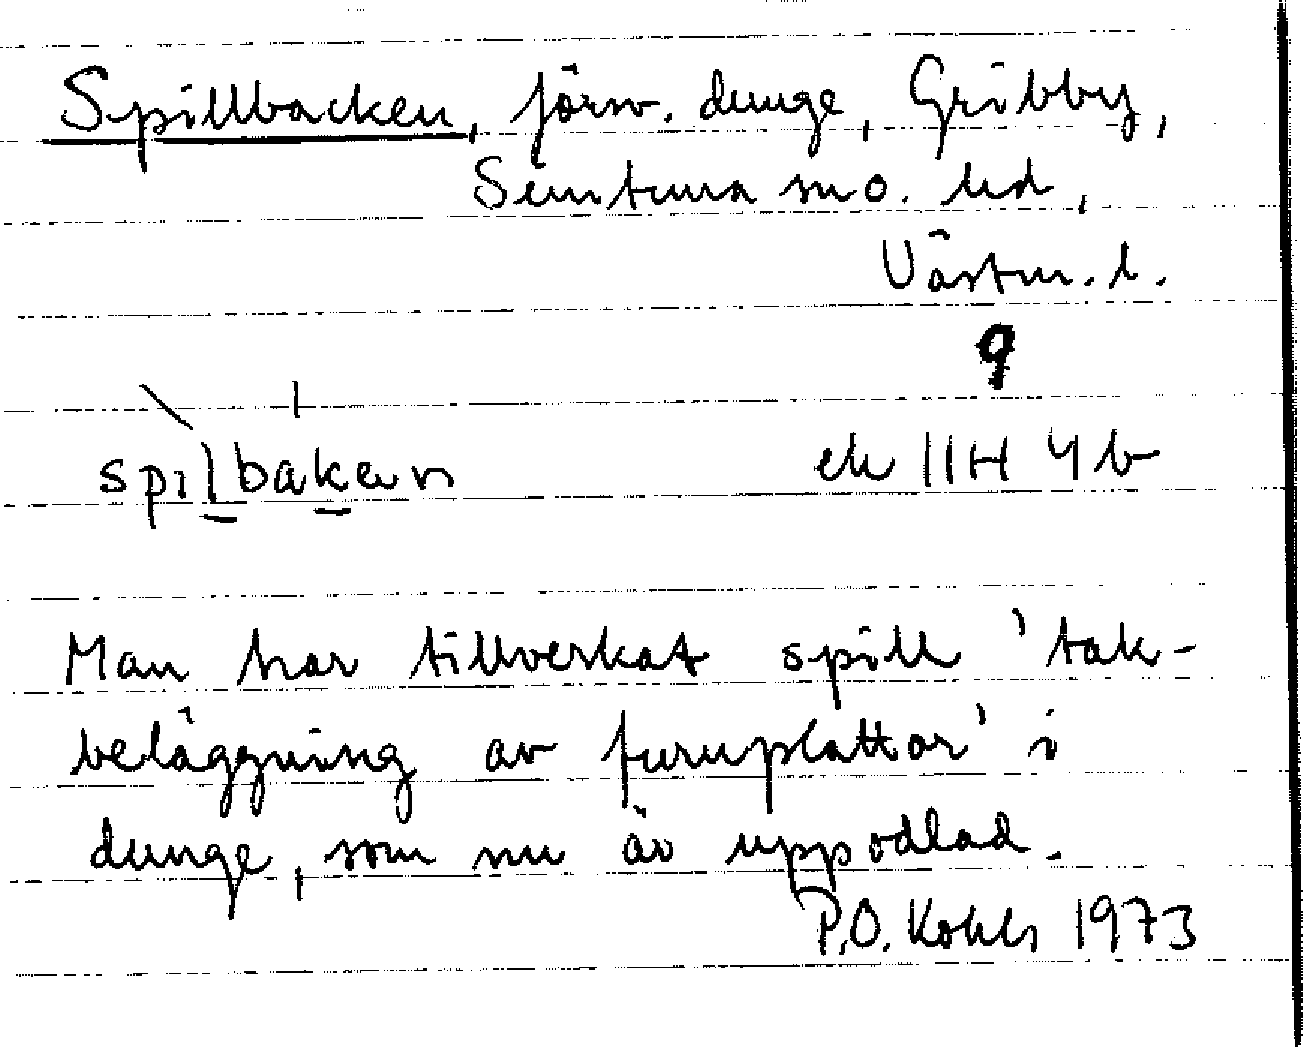 Spillbacken, försv. dunge, Gribby,
Simtuna sn o. hd,
Västm. l.
9
spilbaken ek 11H 4b
Man har tillverkat spill 'tak-
beläggning av furuplattor' i
dunge, som nu är uppodlad.
P.O. Kohls 1973